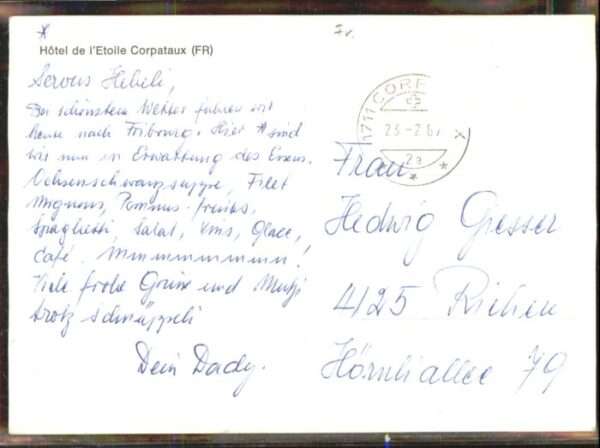 *
Fr.
Hôtel de l'Etoile Corpataux (FR)
Servus Hebeli,
Bei schönstem Wetter fahren wir
heute nach Fribourg. Hier * sind
wir nun in Erwartung des Essens.
Ochsenschwanzsuppe, Filet
Mignons, Pommes-frites,
Spaghetti, Salat, Vins, Glace,
Café. Mmmmmmmmm!
Viele frohe Grüsse und Müntzi
trotz Schnäppeli
Dein Dady.
1711 CORP
23-2.8
2a
Frau
Hedwig Gresser
4125 Riehen
Hörnliallee 79